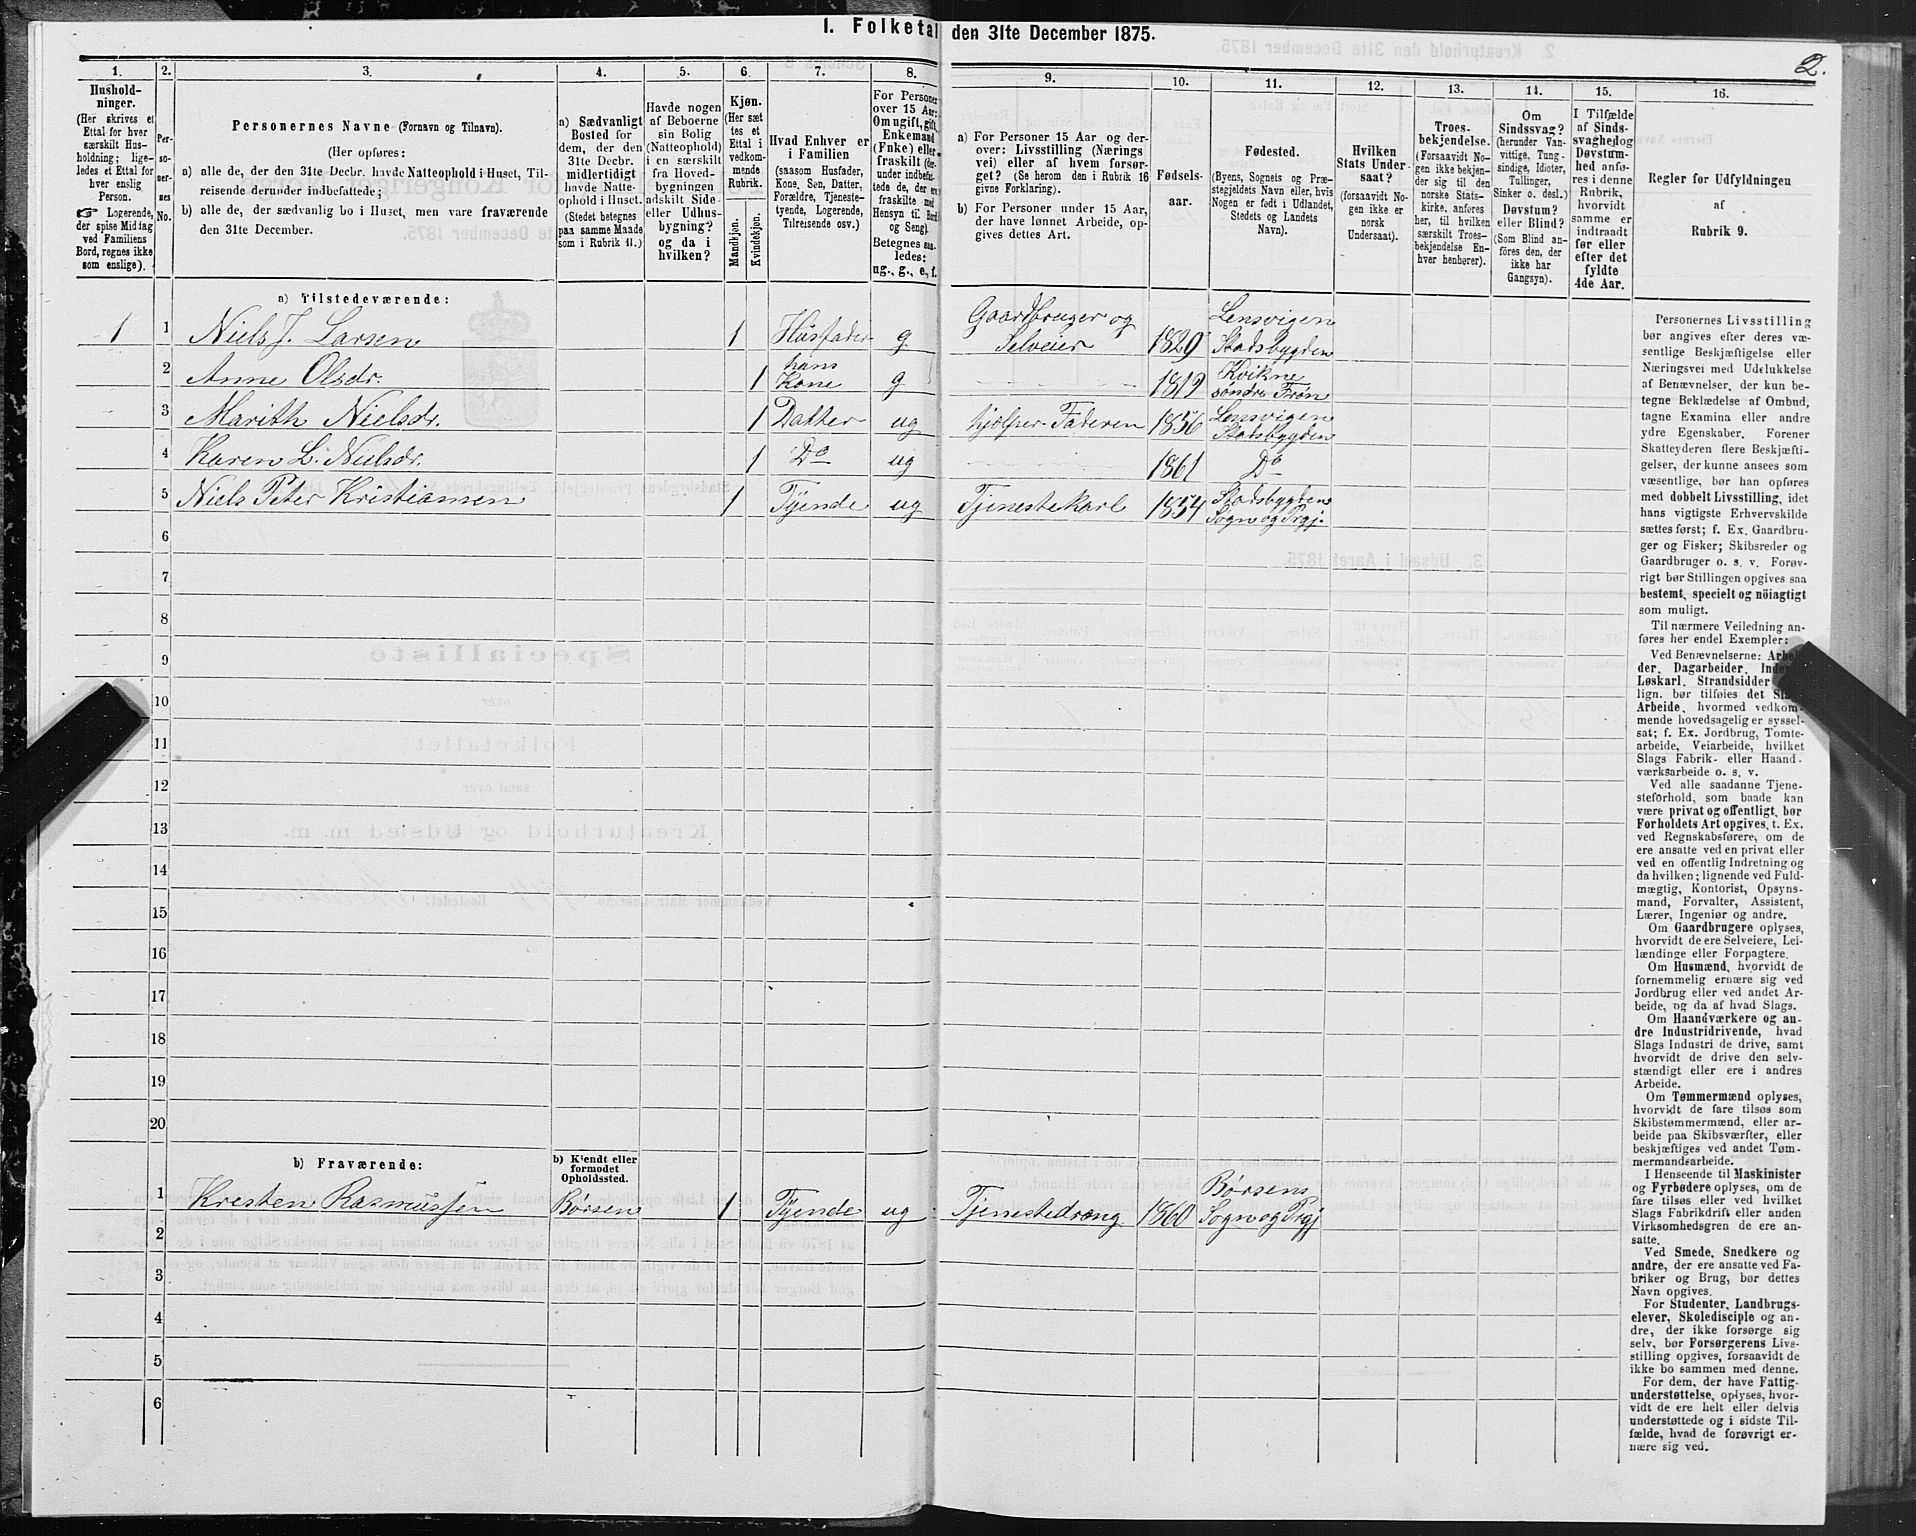 I. Folketal den 31te December 1875.
2.
1.
Hushold-
ninger.
(Her skrives et
Ettal for hver
særskilt Hus-
holdning; lige-
ledes et Ettal for
hver enslig
Person.
☞ Logerende,
der spise Middag
ved Familiens
Bord, regnes ikke
som enslige).
2.
Per-
so-
ner-
nes
No.
3.
Personernes Navne (Fornavn og Tilnavn).
(Her opføres:
a) alle de, der den 31te Decbr. havde Natteophold i Huset, Til-
reisende derunder indbefattede;
b) alle de, der sædvanlig bo i Huset, men vare fraværende
den 31te December.
4.
a) Sædvanligt
Bosted for
dem, der den
31te Decbr.
midlertidigt
havde Natte-
ophold i Huset.
(Stedet betegnes
paa samme Maade
som i Rubrik 11.)
5.
Havde nogen
af Beboerne
sin Bolig
(Natteophold)
i en særskilt
fra Hoved-
bygningen
adskilt Side-
eller Udhus-
bygning?
og da i
hvilken?
6.
Kjøn.
(Her sæt
tes et
Ettal i
vedkom-
mende
Rubrik.
Mandkjøn.
Kvindekjøn.
7.
Hvad Enhver er
i Familien
(saasom Husfader,
Kone, Søn, Datter,
Forældre, Tjeneste-
tyende, Logerende,
Tilreisende osv.)
8.
For Personer
over 15 Aar:
Om ugift, gift,
Enkemand
(Enke) eller
fraskilt (der-
under indbefat-
tede de, der ere
fraskilte med
Hensyn til Bord
og Seng).
Betegnes saa-
ledes:
ug., g., e., f.
9.
a) For Personer 15 Aar og der-
over: Livsstilling (Nærings
vei) eller af hvem forsør-
get? (Se herom den i Rubrik 16
givne Forklaring).
b) For Personer under 15 Aar,
der have lønnet Arbeide, op-
gives dettes Art.
10.
Fødsels-
aar.
11.
Fødested.
(Byens, Sognets og Præ-
stegjeldets Navn eller, hvis
Nogen er født i Udlandet,
Stedets og Landets
Navn).
12.
Hvilken
Stats Under-
saat?
(forsaavidt No-
gen ikke er
norsk
Undersaat).
13.
Troes-
bekjendelse.
(Forsaavidt No-
gen ikke bekjen-
der sig til den
norske Stats-
kirke, anføres
her, til hvilken
særskilt Troes-
bekjendelse En-
hver henhører).
14.
Om
Sindssvag?
(herunder Van-
vittige, Tung-
sindige, Idioter,
Tullinger,
Sinker o. desl.)
Døvstum?
eller Blind?
(Som Blind an-
føres den, der
ikke har
Gangsyn).
15.
I Tilfælde
af Sinds-
svaghed og
Døvstum-
hed anfø-
res i denne
Rubrik,
hvorvidt
samme er
indtraadt
før eller
efter det
fyldte
4de Aar.
16.
Regler for Udfyldningen
af
Rubrik 9.
a) Tilstedeværende:
1 1 Niels J. Larsen 1 Husfader g Gaardbruger og Selveier 1829 Lensvigen Stadsbygden
2 Anne Olsdr. 1 hans Kone g 1819 Kvikne søndre Frøn
3 Marith Nielsdr. 1 Datter ug hjelper Faderen 1856 Lensvigen Stadsbygden
4 Karen L. Nielsdr. 1 Do ug 1861 Do
5 Niels Peter Kristiansen 1 Tyende ug Tjenestekarl 1854 Stadsbygden Sogn og Prgj.
6
7
8
9
10
11
12
13
14
15
16
17
18
19
20
b) Fraværende:
b) Kjendt eller
formodet
Opholdssted.
1 Kresten Rasmussen Børsen 1 Tyende ug Tjenestedreng 1860 Børsens Sogn og Prgj
2
3
4
5
6
Personernes Livsstilling
bør angives efter deres væ-
sentlige Beskjæftigelse eller
Næringsvei med Udelukkelse
af Benævnelser, der kun be-
tegne Beklædelse af Ombud,
tagne Examina eller andre
ydre Egenskaber. Forener
Skatteyderen flere Beskjæfti-
gelser, der kunne ansees som
væsentlige, bør han opføres
med dobbelt Livsstilling, idet
hans vigtigste Erhvervskilde
sættes først; f. Ex. Gaardbru-
ger og Fisker; Skibsreder og
Gaardbruger o. s. v. Forøv-
rigt bør Stillingen opgives saa
bestemt, specielt og nöiagtigt
som muligt.
Til nærmere Veiledning an-
føres her endel Exempler:
Ved Benævnelserne: Arbei
der, Dagarbeider, Inder
Løskarl, Strandsidder
lign. bør tilføies det Slags
Arbeide, hvormed vedkom-
mende hovedsagelig er syssel-
sat; f. Ex. Jordbrug, Tomte-
arbeide, Veiarbeide, hvilket
Slags Fabrik- eller Haand-
værksarbeide o. s. v.
Ved alle saadanne Tjene-
steforhold, som baade kan
være privat og offentligt, bør
Forholdets Art opgives, t. Ex.
ved Regnskabsførere, om de
ere ansatte ved en privat eller
ved en offentlig Indretning og
da hvilken; lignende ved Fuld-
mægtig, Kontorist, Opsyns-
mand, Forvalter, Assistent,
Lærer, Ingeniør og andre.
Om Gaardbrugere oplyses,
hvorvidt de ere Selveiere, Lei-
lændinge eller Forpagtere.
Om Husmænd, hvorvidt de
fornemmelig ernære sig ved
Jordbrug eller ved andet Ar-
beide, og da af hvad Slags.
Om Haandværkere og an-
dre Industridrivende, hvad
Slags Industri de drive, samt
hvorvidt de drive den selv-
stændigt eller ere i andres
Arbeide.
Om Tømmermænd oplyses,
hvorvidt de fare tilsøs som
Skibstømmermænd, eller ar-
beide paa Skibsværfter, eller
beskjæftiges ved andet Tøm-
mermandsarbeide.
I Henseende til Maskinister
og Fyrbødere oplyses, om de
fare tilsøs eller ved hvilket
Slags Fabrikdrift eller anden
Virksomhedsgren de ere an-
satte.
Ved Smede, Snedkere og
andre, der ere ansatte ved Fa-
briker og Brug, bør dettes
Navn opgives.
For Studenter, Landbrugs-
elever, Skoledisciple og an-
dre, der ikke forsørge sig
selv, bør Forsørgerens Livs-
stilling opgives, forsaavidt de
ikke bo sammen med denne.
For dem, der have Fattig-
understøttelse, oplyses, hvor-
vidt de ere helt eller delvis
understøttede og i sidste Til-
fælde, hvad de forøvrigt er-
nære sig ved.